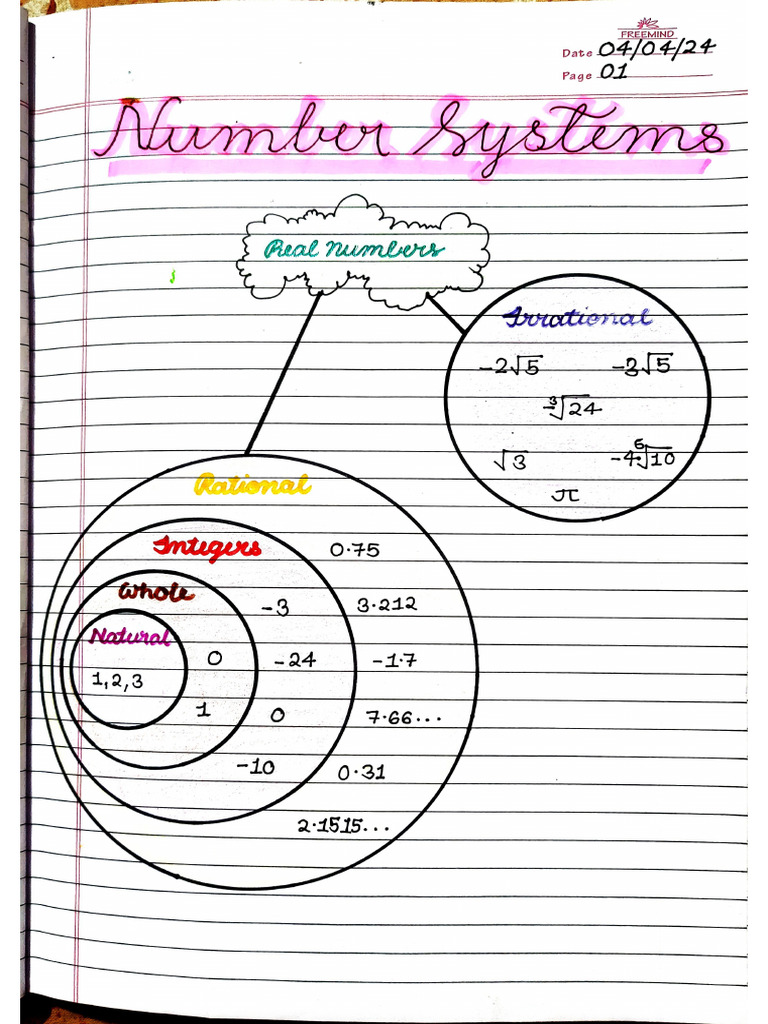 FREEMIND
Date 04/04/24
Page 01
Number Systems
Real Numbers
Irrational
-2√5 -3√5
-∛24
√3 -4⁶√10
π
Rational
Integers 0.75
Whole -3 3.212
Natural
0 -24 -1.7
1,2,3
1 0 7.66...
-10 0.31
2.1515...